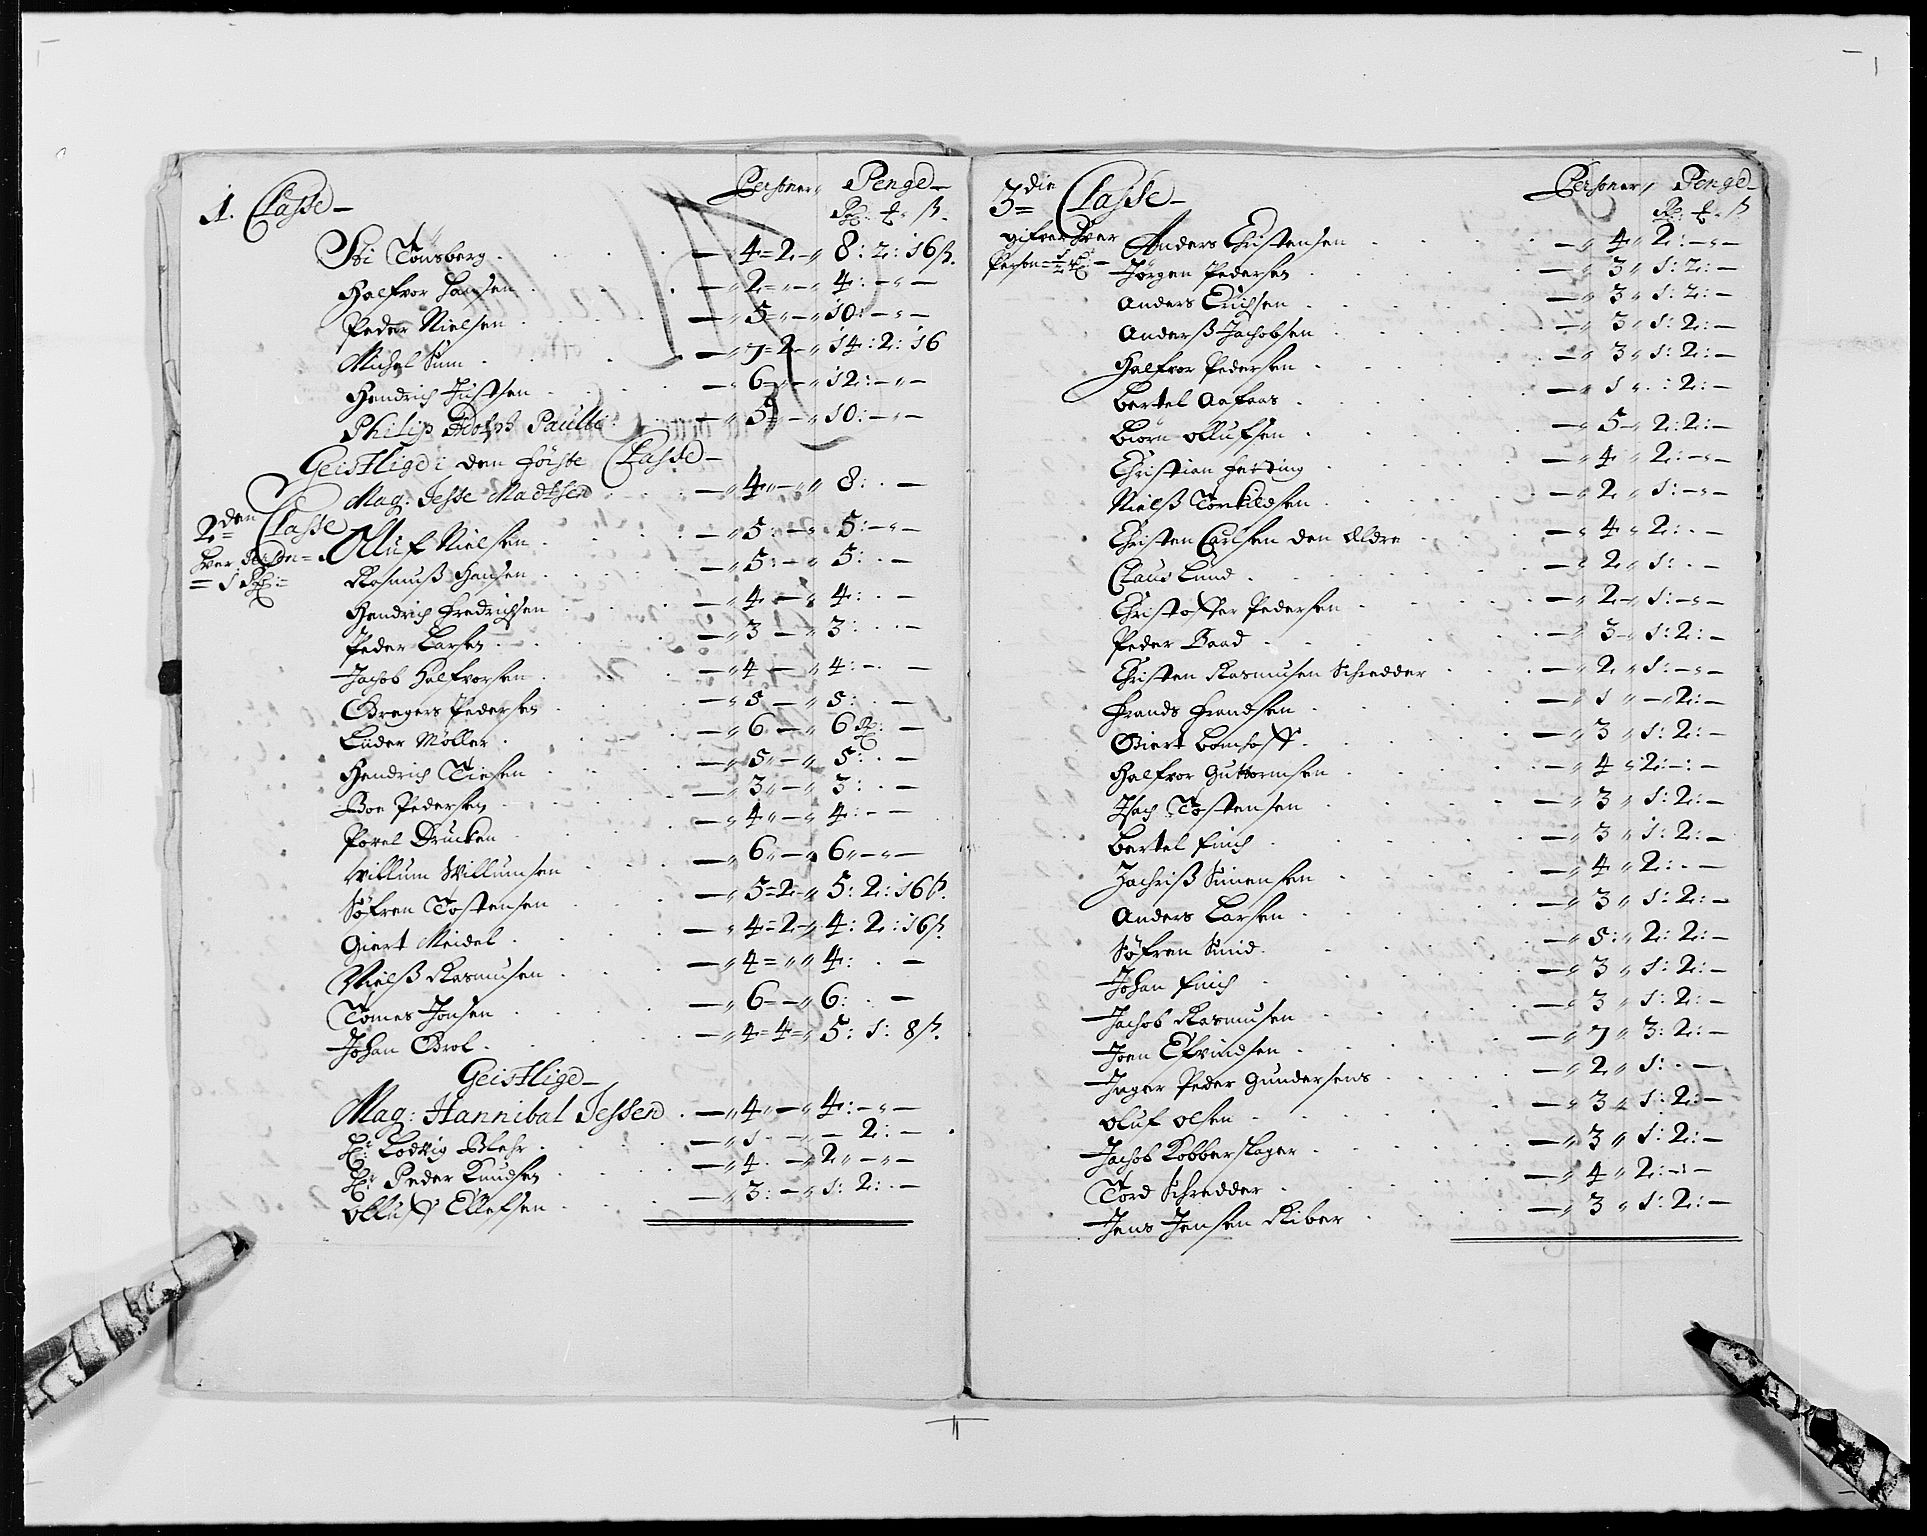 1. Classe — Personer, Penge —
Rd: ƒ: ß.
Sti Tonsberg — 4=2 — 8: 2: 16 ß.
Halfvor Hansen — 2 — 4: — —
Peder Nielsen — 5 — 10: — —
Michel Sun — 7=2 — 14: 2: 16
Hendrich Justsen — 6 — 12: — —
Philip Adolph Paulli: — 5 — 10: — —
Geistlige i den förste Classe —
Mag: Jesse Madtsen — 4 — 8: . —
2den Classe
hver Person = 1 Rd:
Olluf Nielsen — 5: — 5: — —
Rasmuß Hansen — 5: — 5: . —
Hendrich Fredrichsen — 4 — 4: . —
Peder Larsen — 3 — 3: . —
Jacob Halfvorsen — 4 — 4: — . —
Gregers Pedersen — 5 — 5: . —
Lüder Møller — 6 — 6 Rd: —
Hendrich Tiesen — 5 — 5: . —
Boe Pedersen — 3 — 3: . —
Povel Drucken — 4 — 4: — —
Villum Willumsen — 6 — 6 — —
Søfren Tostensen — 5=2 — 5: 2: 16 ß.
Giert Meidel — 4=2 — 4: 2: 16 ß.
Nielß Rasmusen — 4 = 4: . —
Tomes Jonsen — 6 — 6: . —
Johan Grol — 4=4= 5: 1: 8 ß.
Geistlige —
Mag: Hannibal Jessen — 4 — 4: — —
Hr: Lodvig Blehr — 1 — — 2: —
Hr: Peder Knudsen — 4 — 2 — —
Olluff Ellefsen — 3: — 1: 2: —
3die Classe — Personer, Penge —
Rd: ƒ: ß
gifver hver
Person = ½ Rd: —
Anders Christensen — 4 2: — —
Jörgen Pedersen — 3 1: 2: —
Anders Erichsen — 3 1: 2: —
Anderß Jachobsen — 3 1: 2: —
Halfvor Pedersen — 3 1: 2: —
Bertel Aafaas — 1 . : 2: —
Biörn Ollufsen — 5 — 2: 2: —
Christian Fetting — 4 2: — —
Nielß Torkildsen — 2 1: — —
Christen Carlsen den Eldre — 4 2: . —
Claus Lund — 2 1: . —
Christoffer Pedersen — 2 — 1: — —
Peder Baad — 3 — 1: 2: —
Christen Rasmusen Schredder — 2 1: — —
Frands Frandsen — 1 — 2: —
Giert Bomhoff — 3 1: 2: —
Halfvor Guttormsen — 4 2: — : —
Isach Tostensen — 3 1: 2: —
Bertel Finch — 3 1: 2: —
Zachriß Simensen — 4 2: . —
Anders Larsen — 3 1: 2: —
Søfren Smid — 5: 2: 2: —
Johan Finch — 3 1: 2: —
Jachob Rasmusen — 3 1: 2: —
Joen Efvindsen — 7 3: 2: —
Jager Peder Gundersens — 2 1: . —
Oluf Olsen — 3 1: 2: —
Jachob Kobberslager — 3 1: 2: —
Tord Schredder — 4 2: — —
Jens Jensen Riber — 3 1: 2: —